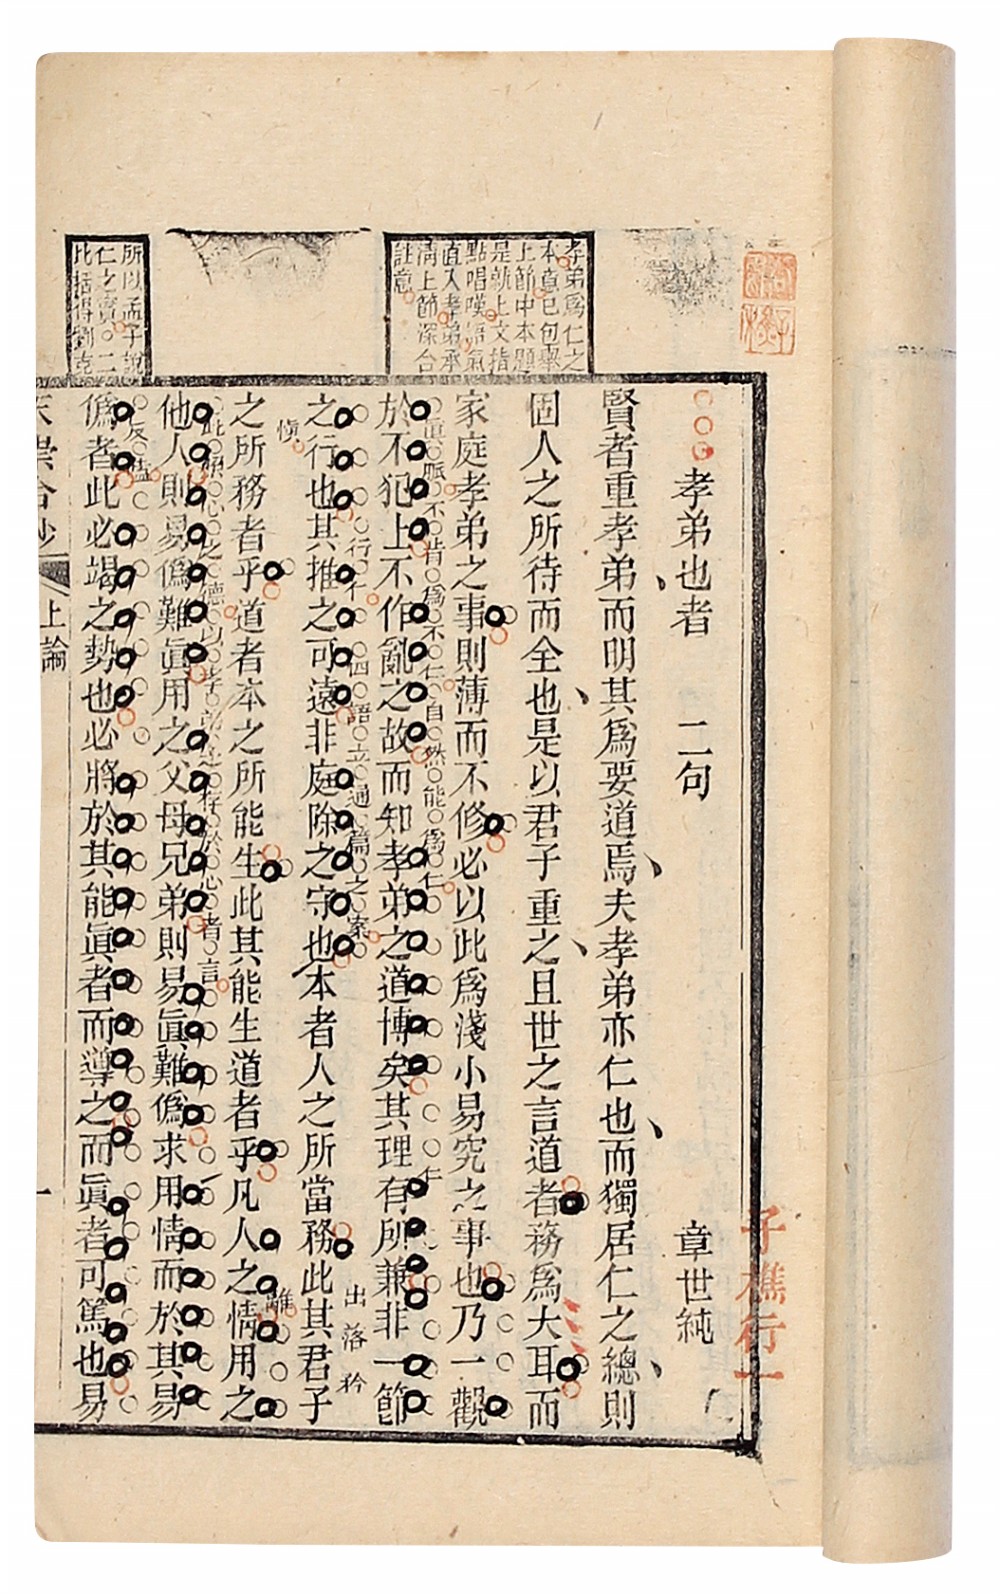 孝弟也者　二句　章世純
賢者重孝弟而明其爲要道焉夫孝弟亦仁也而獨居仁之總則
固人之所待而全也是以君子重之且世之言道者務爲大耳而
家庭孝弟之事則薄而不修必以此爲淺小易究之事也乃一觀
於不犯上不作亂之故而知孝弟之道博矣其理有所兼非一節
之行也其推之可遠非庭除之守也本者人之所當務此其君子
之所務者乎道者本之所能生此其能生道者乎凡人之情用之
他人則易僞難眞用之父母兄弟則易眞難僞求用情而於其易
僞者此必竭之勢也必將於其能眞者而導之而眞者可篤也易
孝弟爲仁之
本章已包舉
上節中本題
是就上文指
點唱嘆語氣
直入孝弟承
清上節深合
註意
所以孟子說
仁之實。二
比括得劉克
眞脈不肯爲不仁自然能爲仁
行仁四語立通篇之案
出落矜
愼
此順心之德以孝弟之存於心者言
上論
一
子樵行一